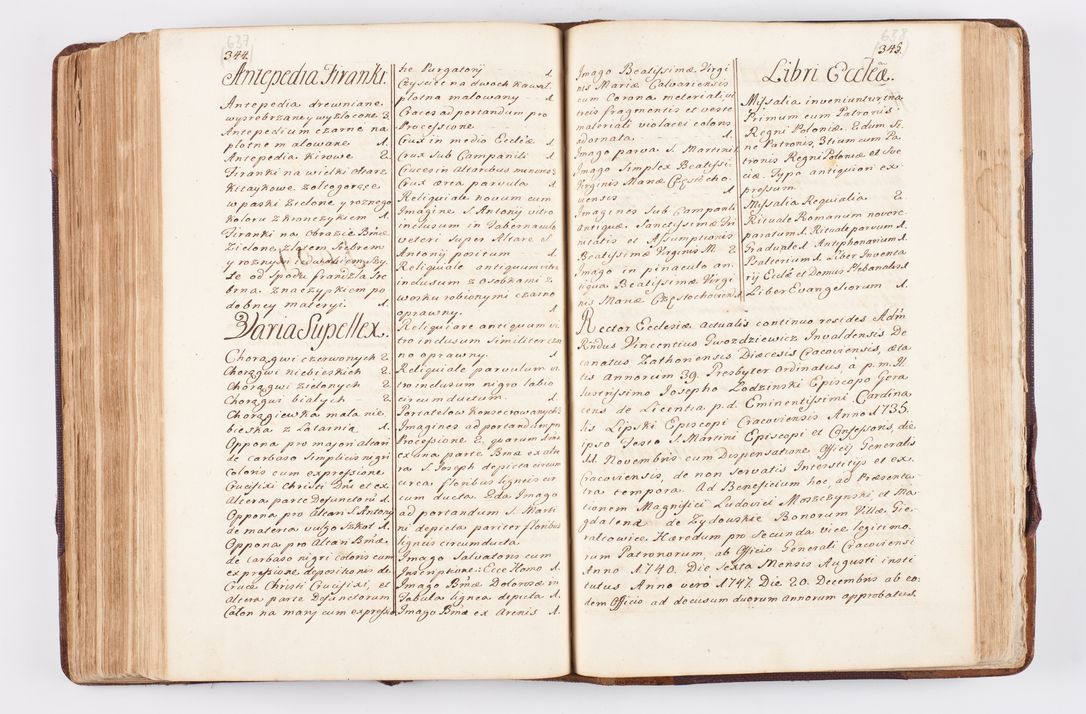 637
344.
Antepedia Firanki.
Antepedia drewniane
wysrebrzane y wyzłocone 3.
Antepedium czarne na
płotnie malowane 1.
Antepedia Kirowe 2.
Firanki na wielki ołtarz
Kitaykowe zołtogorące
w paski Zielone y roznego
Koloru z Kronczykiem 1.
Firanki na Obrazie Bmæ
Zielone, złotem srebrem
y roznym
te od spodu frandzla Sre
brna znaczypkiem po
dobney materyi. 1.
Varia Supellex.
Chorągwi czerwonych 2.
Chorągwi niebieskich 2.
Chorągwi zielonych 2.
Chorągwi białych 2.
Chorągiewka mała nie
bieska z Latarnia 1.
Oppona pro majori altari
de carbaso simplicis nigri
Coloris cum expressione
Crucifixi Christi Dni et ex
altera parte Defunctorū 1.
Oppona pro altari S. Antony
de materia vulgo szkat 1.
Oppona pro altari Bmæ
de carbaso nigri coloris cum
expressione depositionis de
Cruce Christi Crucifixi, et
altera parte Defunctorum
Całon na mary cum expressio
ne Purgatory 1.
Czyscie na dwoch Kawał.
płotna malowany 1.
Cruces ad portandum pro
Processione
Crux in medio Eccleæ 1.
Crux Sub Campanili 1.
Cruces in Altaribus minores
Crux ærea parvula 1.
Reliquiale novum cum
Imagine S. Antony vitro
inclusum in Tabernaculo
veteri Super Altare S.
Antony positum 1.
Reliquiale antiquum vitro
inclusum z osobkami z
wosku robionymi czarno
oprawny. 1.
Reliquiare antiquum vi
tro inclusum similiter czar
no oprawny. 1.
Reliquiale parvulum vi
tro inclusum nigro labio
circumductum. 1.
Portatelow konsecrowanych 3
Imagines ad portandum pro
Processione 2. quarum una
ex una parte Bmæ ex alte
ra S. Joseph depicta circum
circa floribus ligneis cir
cum ducta. 2da Imago
ad portandum S. Marti
ni depicta pariter floribus
ligneis circumducta.
Imago Salvatoris cum
Inscriptione: Ecce Homo 1.
Imago Bmæ Dolorosæ in
Tabula lignea depicta 1.
Imago Bmæ ex Arenis 1.
638
345.
Imago Beatissimæ Virgi
nis Mariæ Calvariensis
cum Corona meteriali vi
treis fragmentis et veste
materiali violacei coloris
adornata. 1.
Imago parva S. Martini 1.
Imago Simplex Beatissi
Virginis Mariæ Częstocho
viensis 1.
Imagines Sub Campanili
Antiquæ. Sanctissimæ Tri
nitatis et Assumptionis
Beatissimæ Virginis M. 2.
Imago in pinaculo an
tiqua Beatissimæ Virgi
nis Mariæ Częstochoviensis
Libri Eccleæ.
Missalia inveniuntur, una
Primum cum Patronis
Regni Poloniæ. 2dum Si
ne Patronis. 3tium cum Pa
tronis Regni Poloniæ et Sue
ciæ. Typo antiquiori ex
pressum.
Missalia Requialia 2.
Rituale Romanum novore
paratum 1. Rituale parvum 1.
Graduale 1. Antiphonarium 1.
Psalterium 1. Liber Inventa
rij Eccłæ et Domus Plebanalis 1
Liber Evangeliorum 1.
Rector Ecclesiæ actualis continuo resides Adm
Rndus Vincentius Gwozdziewicz Inwaldensis De
canatus Zathoriensis Diæcesis Cracoviensis, æta
tis Annorum 39. Presbyter Ordinatus, à p. m. Il
lustrissimo Josepho Łodzinski Episcopo Gera
cens de Licentia p. d. Eminentissimi Cardina
lis Lipski Episcopi Cracoviensis Anno 1735.
ipso Festo S. Martini Episcopi et Confessoris, die
11. Novembris cum Dispensatione Officij Generalis
Cracoviensis, de non servatis Interstitys et ex
tra tempora. Ad Beneficium hoc, ad Præsenta
tionem Magnifici Ludovici Moszczynski, et Ma
gdalenæ de Zydowskie Bonorum Villæ Gie
rałtowice Hæredum pro Secunda vice legitimo
rum Patronorum, ab Officio Generali Cracoviensi
Anno 1740. Die Sexta Mensis Augusti insti
tutus Anno verò 1747. Die 20. Decembris ab eo
dem Officio ad decusum duorum Annorum approbatus.